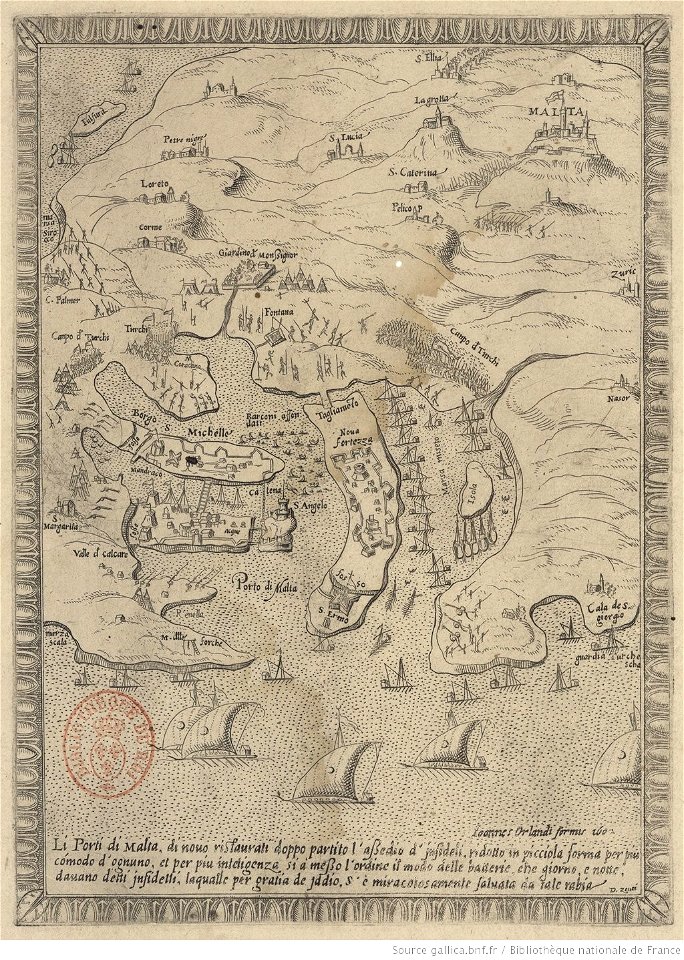 S. Elia
La grotta
MALTA
Falfara
Petre nigre
S. Lucia
S. Caterina
Loreto
Pelico
Corme
marza
Siroco
Giardino d Monsignor
Zuric
C. Palmer
Turchi
Fontana
Campo d Turchi
Canpo d Turchi
Nasor
Tagliamolo
Borgo
S. Michelle
Barconi affon
dati
Nova
fortezza
fosso
Mandracio
Catena
Isola
S. Angelo
Margarita
fosso
Valle d calcara
Porto di Malta
fosso
S. Ermo
Cala de S.
giorgio
marza
scala
M. delle forche
guardia Turche
scha
Joannes Orlandi formis 160
Li Porti di Malta, di novo ristaurati doppo partito l'assedio d' infideli, ridotto in picciola forma per piu
comodo d'ognuno, et per piu inteligenza si a messo l'ordine il modo delle batterie, che giorno, e notte,
davano detti infidelli, laqualle per gratia de iddio, s' è miracolosamente salvata da tale rabia
Source gallica.bnf.fr / Bibliothèque nationale de France